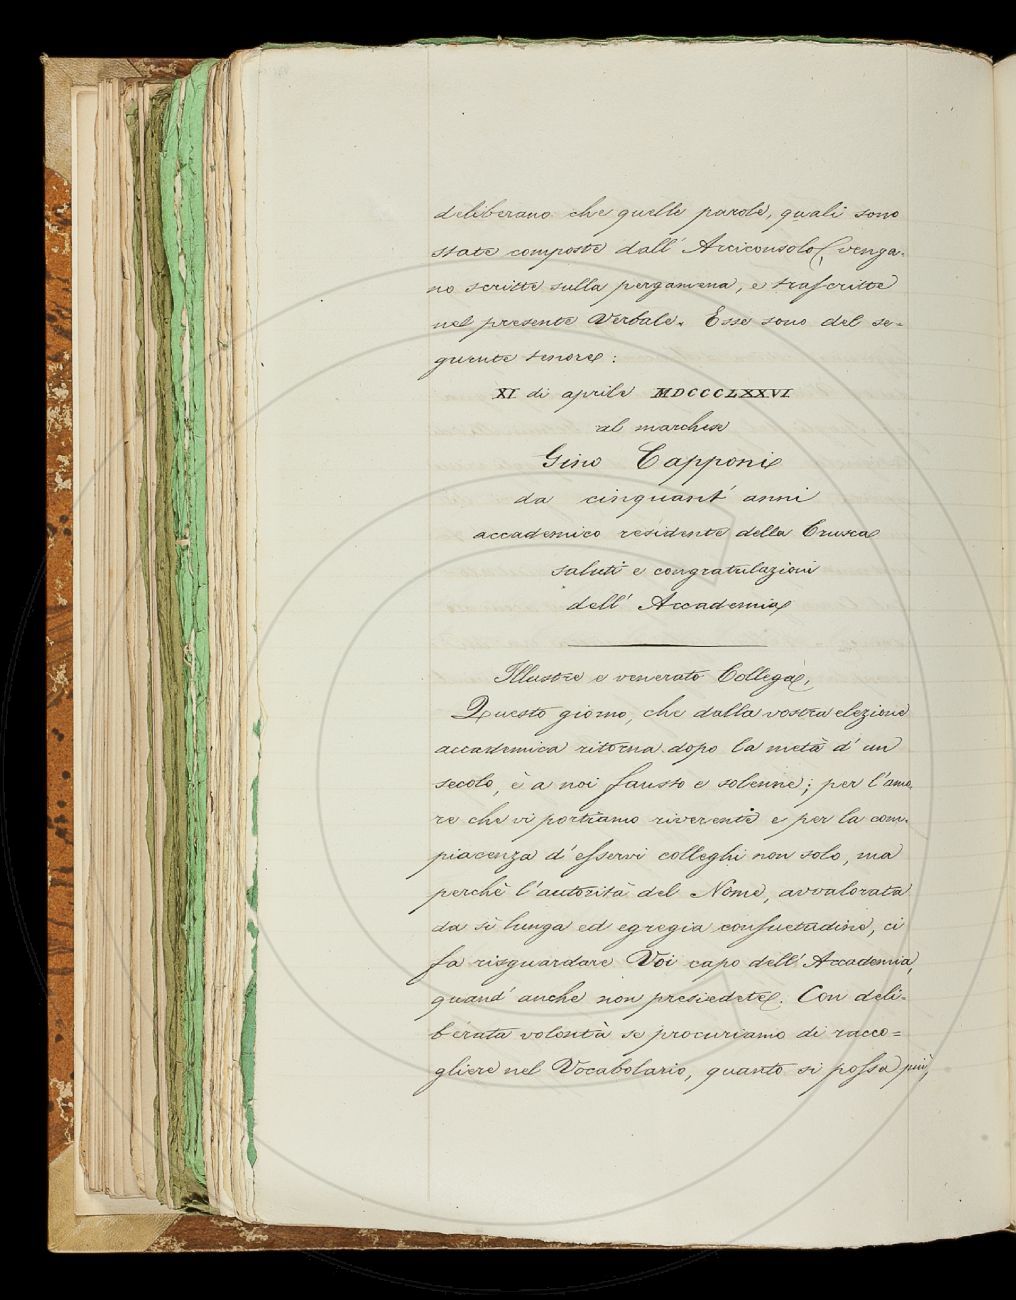 deliberano che quelle parole, quali sono
state composte dall' Arciconsolo, venga-
no scritte sulla pergamena, e trascritte
nel presente Verbale. Esse sono del se-
guente tenore:
XI di aprile MDCCCLXXVI
al marchese
Gino Capponi
da cinquant' anni
accademico residente della Crusca
saluti e congratulazioni
dell' Accademia
Illustre e venerato Collega,
Questo giorno, che dalla vostra elezione
accademica ritorna dopo la metà d' un
secolo, è a noi fausto e solenne; per l'amo-
re che vi portiamo riverente e per la com-
piacenza d' esservi colleghi non solo, ma
perchè l'autorità del Nome, avvalorata
da sì lunga ed egregia consuetudine, ci
fa risguardare Voi capo dell' Accademia,
quand' anche non presiedete. Con deli-
berata volontà se procuriamo di racco-
gliere nel Vocabolario, quanto si possa più,